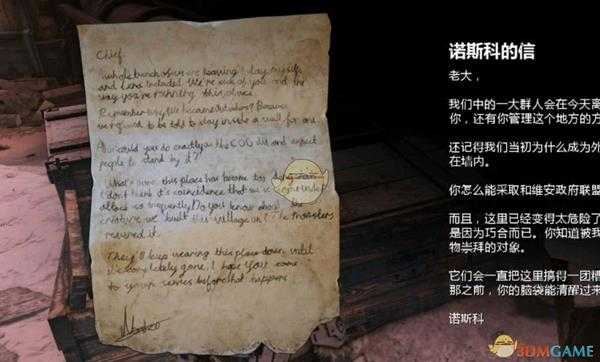 Chief,
whole bunch of us are leaving today, myself
and Lena included. We're sick of you and the
way you're running this place.
Remember why we became Outsiders? Because
we refused to be told to stay inside a wall for one.
How could you do exactly as the COG did and expect
people to stand by it?
What's more, this place has become too
I don't think it's coincidence that we've come under
attack so frequently. Do you know about the
creature we built this village on? The monsters
revered it.
They'll keep wearing this place down until
completely gone. I hope you come
to your senses before that happens
诺斯科的信
老大，
我们中的一大群人会在今天离
你，还有你管理这个地方的方
还记得我们当初为什么成为外
在墙内。
你怎么能采取和维安政府联盟
而且，这里已经变得太危险了
是因为巧合而已。你知道被我
物崇拜的对象。
它们会一直把这里搞得一团糟
那之前，你的脑袋能清醒过来
诺斯科
3DMGAME